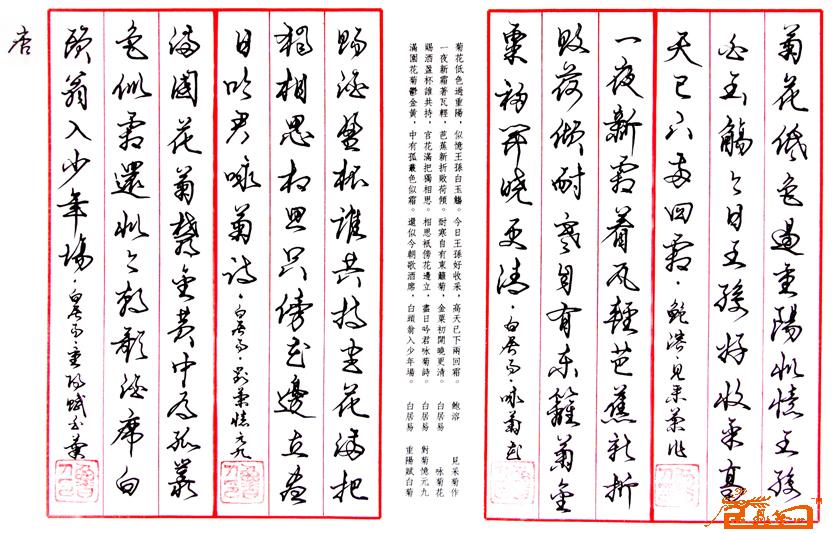 菊花低色過重陽似憶王孫
白玉觴今日王孫好收采高
天已下兩回霜·鮑溶·見采菊作
一夜新霜着瓦輕芭蕉新折
敗荷傾耐寒自有東籬菊金
粟初開曉更清·白居易·咏菊花
菊花低色過重陽,似憶王孫白玉觴。今日王孫好收采,高天已下兩回霜。 鮑溶 見采菊作
一夜新霜著瓦輕,芭蕉新折敗荷傾。耐寒自有東籬菊,金粟初開曉更清。 白居易 咏菊花
賜酒盈杯誰共持,宮花滿把獨相思。相思祇傍花邊立,盡日吟君咏菊詩。 白居易 對菊憶元九
滿園花菊鬱金黃,中有孤叢色似霜。還似今朝歌酒席,白頭翁入少年場。 白居易 重陽賦白菊
賜酒盈杯誰共持宮花滿把
獨相思相思只傍花邊立盡
日吟君咏菊詩·白居易·對菊憶元九
滿園花菊鬱金黄中有孤叢
色似霜還似今朝歌酒席白
頭翁入少年場·白居易重陽賦白菊
唐